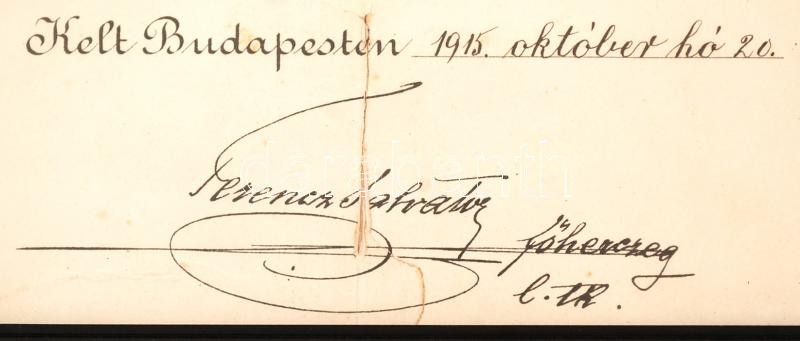 Kelt Budapesten 1915. október hó 20.
Ferencz Salvátor
főherczeg
l. tk.